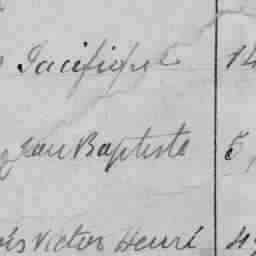 Pacifique 14
Jean Baptiste 5,
Victor Henri 4